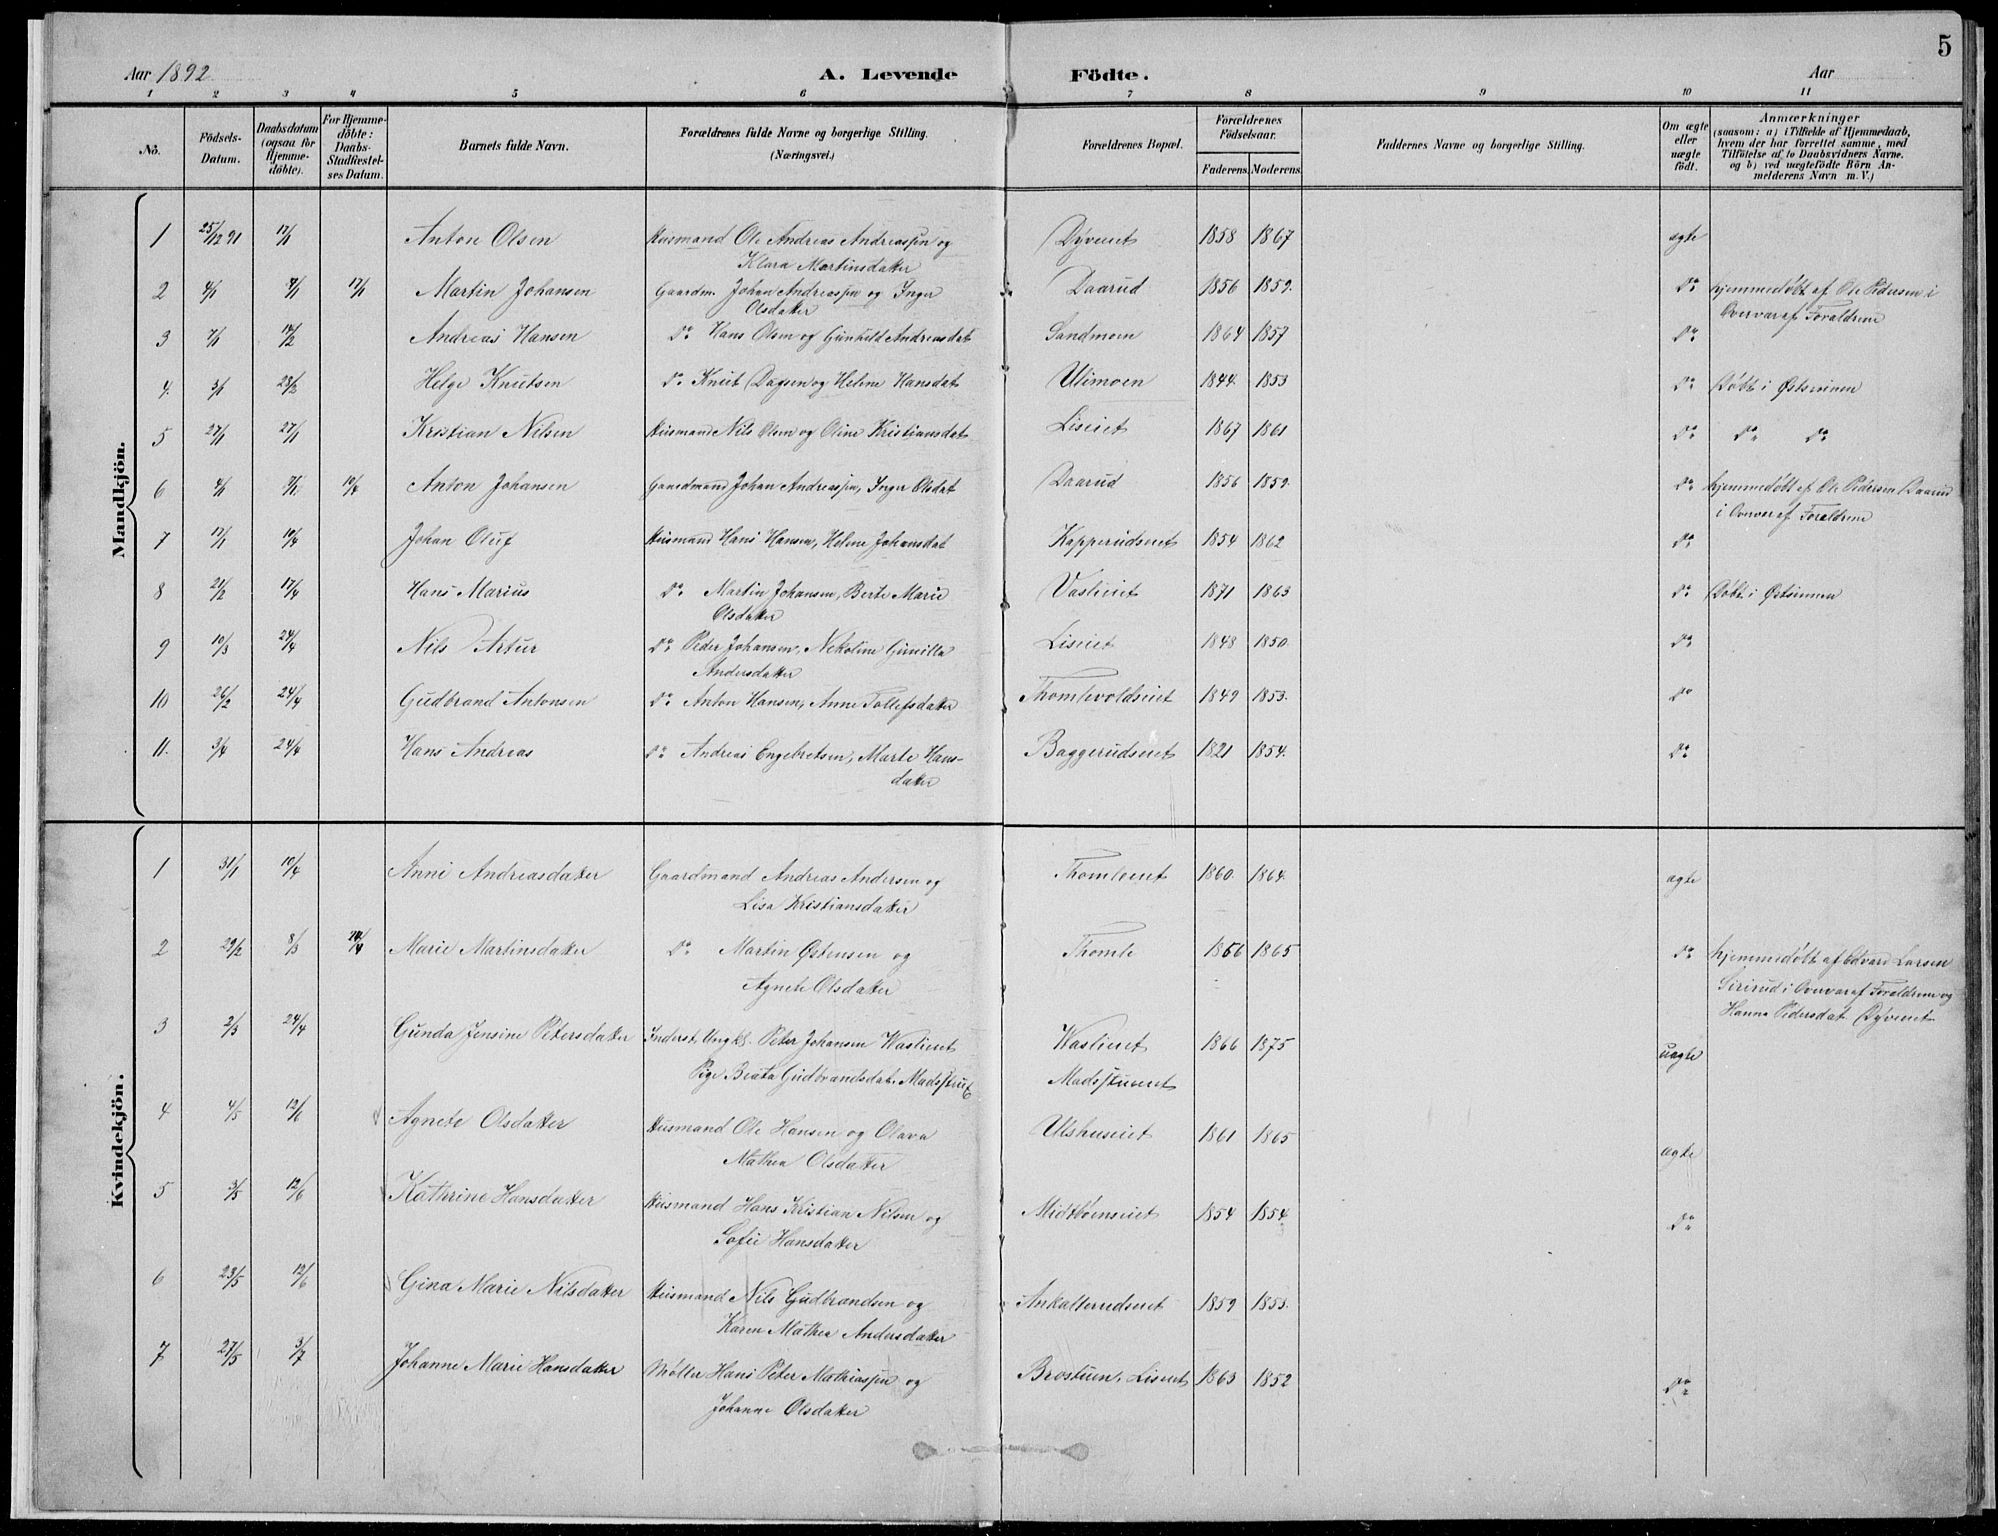 5
Aar 1892
A. Levende Födte.
Aar
1 2 3 4 5 6 7 8 9 10 11
No. Födsels-Datum. Daabsdatum (ogsaa for Hjemme-döbte). For Hjemme-döbte: Daabs-Stadfæstel-ses Datum. Barnets fulde Navn. Forældrenes fulde Navne og borgerlige Stilling. (Næringsvei.) Forældrenes Bopæl. Forældrenes Födselsaar. Faderens. Moderens. Faddernes Navne og borgerlige Stilling. Om ægte eller uægte födt. Anmærkninger (saasom: a) i Tilfælde af Hjemmedaab, hvem der har forrettet samme, med Tilföielse af to Daabsvidners Navne. og b) ved uægtefödte Börn An-melderens Navn m. V.)
Mandkjön.
1 25/12 91 17/1 Anton Olsen Husmand Ole Andreas Andreassen og Dyveiet 1858 1867 ægte
Klara Martinsdatter
2 4/1 9/1 17/1 Martin Johansen Gaardm. Johan Andreassen og Inger Daarud 1856 1859. Do hjemmedøbt af Ole Pedersen i
Olsdatter Overvær af Forældrene
3 7/1 14/2 Andreas Hansen Do Hans Olsen og Gunhild Andreasdat Sandmoen 1864 1857 Do
4. 3/1 28/2 Helge Knutsen Do Knut Dagsen og Helene Hansdat Ulimoen 1844. 1853 Do Døbt i Østsinnen
5 27/1 27/1 Kristian Nilsen Husmand Nils Olsen og Oline Kristiansdat Liseiet 1867 1861 Do Do Do
6 4/1 9/1 10/4 Anton Johansen Gaardmand Johan Andreassen, Inger Olsdat Daarud 1856 1859. Do hjemmedøbt af Ole Pedersen Daarud
i Overvær af Forældrene
7 17/1 10/4 Johan Oluf Husmand Hans Hansen, Helene Johansdat Kapperudseiet 1854 1862 Do
8 21/2 17/4 Hans Marius Do Martin Johansen, Berte Marie Vaslieiet 1871 1863 Do Døbt i Østsinnen
Olsdatter
9 10/3 24/4 Nils Artur Do Peder Johansen, Nekoline Gunilla Liseiet 1848 1850. Do
Andersdatter
10 26/2 24/4 Gudbrand Antonsen Do Anton Hansen, Anne Tollefsdatter Thomlevoldseiet 1849 1853. Do
11. 3/4 24/4 Hans Andreas Do Andreas Engebretsen, Marte Hans- Baggerudseiet 1821 1854. Do
datter
Kvindekjön.
1 31/1 10/4 Anni Andreasdatter Gaardmand Andreas Andersen og Thomleeiet 1860. 1864. ægte
Lisa Kristiansdatter
2 29/2 8/3 24/4 Marie Martinsdatter Do Martin Østensen og Thomle 1866 1865 Do hjemmedøbt af Edvard Larsen
Agnete Olsdatter Siritrud i Overvær af Forældrene og
Hanna Pedersdat. Dyveiet
3 2/3 24/4 Gunda Jensine Petersdatter Inderst, Ungk. Peter Johansen Waslieiet Waslieiet 1866 1875 uægte
Pige Beata Gudbrandsdat. Madsstuet Madsstueeiet
4 4/5 12/6 Agnete Olsdatter Husmand Ole Hansen og Olava Ulshuseiet 1861 1865 ægte
Mathea Olsdatter
5 3/5 12/6 Kathrine Hansdatter Husmand Hans Kristian Nilsen og Midtbøenseiet 1854 1854. Do
Sofie Hansdatter
6 23/5 12/6 Gina Marie Nilsdatter Husmand Nils Gudbrandsen og Ankallerudseiet 1859 1855.
Karen Mathea Andersdatter
7 27/5 3/7 Johanne Marie Hansdatter Møller Hans Peter Mathiassen og Brostuen, Liseiet 1863 1852 Do
Johanne Olsdatter